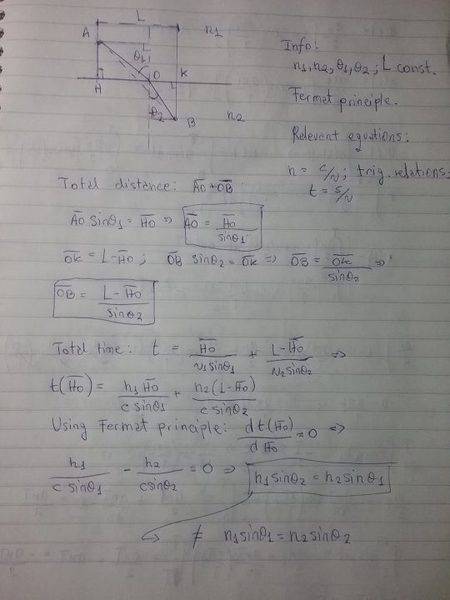 L
A
n1
θ1
O
K
H
θ2
B
n2
Info:
n1, n2, θ1, θ2 ; L const.
Fermet principle.
Relevent equations:
n = c/v ; trig. relations.
t = s/v
Total distance: AO + OB
AO sinθ1 = HO => AO = HO / sinθ1
OK = L - HO ; OB sinθ2 = OK => OB = OK / sinθ2 =>
OB = L - HO / sinθ2
Total time: t = HO / v1 sinθ1 + L - HO / v2 sinθ2 =>
t(HO) = n1 HO / c sinθ1 + n2 (L - HO) / c sinθ2
Using Fermet principle: d t(HO) / d HO = 0 =>
n1 / c sinθ1 - n2 / c sinθ2 = 0 => n1 sinθ2 = n2 sinθ1
≠ n1 sinθ1 = n2 sinθ2